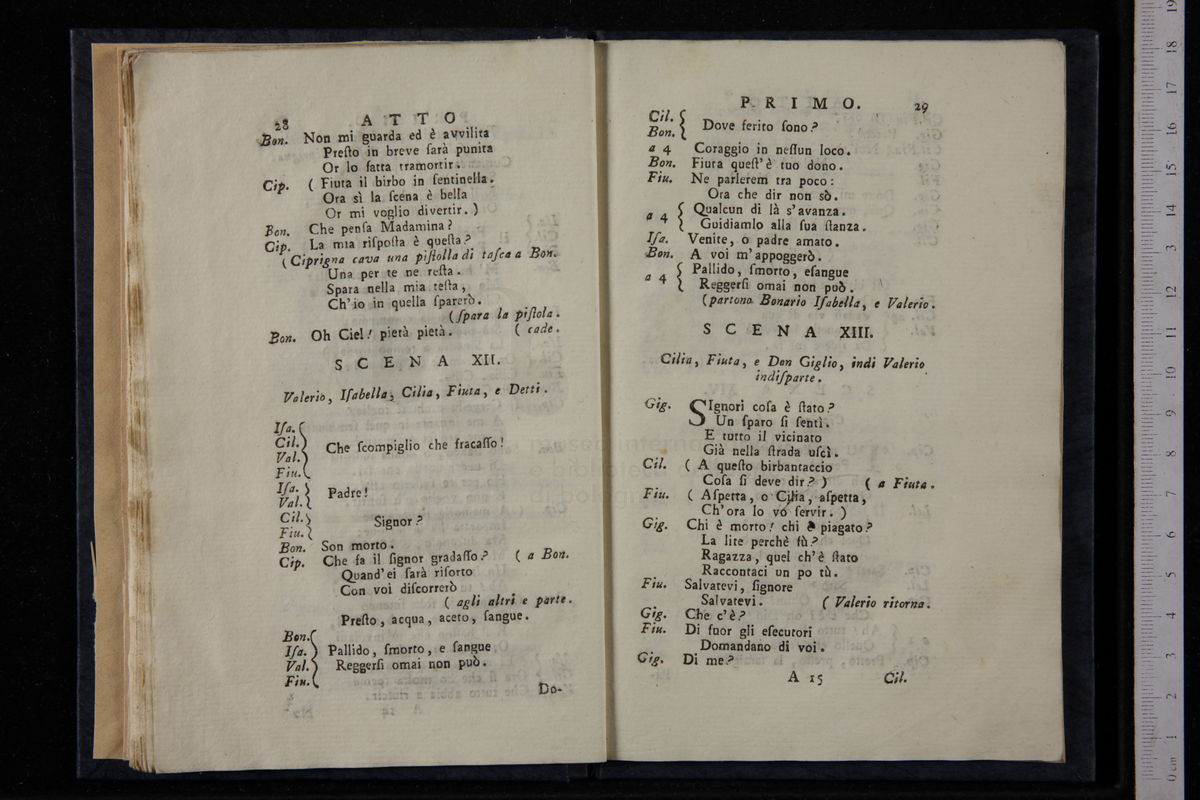 28 ATTO
Bon. Non mi guarda ed è avvilita
Preſto in breve ſarà punita
Or lo fatta tramortir.
Cip. ( Fiuta il birbo in ſentinella.
Ora sì la ſcena è bella
Or mi voglio divertir. )
Bon. Che penſa Madamina?
Cip. La mia riſpoſta è queſta?
( Ciprigna cava una piſtolla di taſca a Bon.
Una per te ne reſta.
Spara nella mia teſta,
Ch'io in quella ſparerò.
( ſpara la piſtola.
Bon. Oh Ciel! pietà pietà. ( cade.
SCENA XII.
Valerio, Iſabella, Cilia, Fiuta, e Detti.
Iſa.
Cil.
Val.
Fiu.
Che ſcompiglio che fracaſſo!
Iſa.
Val.
Padre!
Cil.
Fiu.
Signor?
Bon. Son morto.
Cip. Che fa il ſignor gradaſſo? ( a Bon.
Quand'ei ſarà riſorto
Con voi diſcorrerò
( agli altri e parte.
Preſto, acqua, aceto, ſangue.
Bon.
Iſa.
Val.
Fiu.
Pallido, ſmorto, e ſangue
Reggerſi omai non può.
Do-
PRIMO. 29
Cil.
Bon.
Dove ferito ſono?
a 4 Coraggio in neſſun loco.
Bon. Fiuta queſt'è tuo dono.
Fiu. Ne parlerem tra poco:
Ora che dir non sò.
a 4 Qualcun di là s'avanza.
Guidiamlo alla ſua ſtanza.
Iſa. Venite, o padre amato.
Bon. A voi m'appoggerò.
a 4 Pallido, ſmorto, eſangue
Reggerſi omai non può.
(partono Bonario Iſabella, e Valerio.
SCENA XIII.
Cilia, Fiuta, e Don Giglio, indi Valerio
indiſparte.
Gig. SIgnori coſa è ſtato?
Un ſparo ſi ſentì.
E tutto il vicinato
Già nella ſtrada uſcì.
Cil. ( A queſto birbantaccio
Coſa ſi deve dir? ) ( a Fiuta.
Fiu. ( Aſpetta, o Cilia, aſpetta,
Ch'ora lo vò ſervir. )
Gig. Chi è morto! chi è piagato?
La lite perchè fù?
Ragazza, quel ch'è ſtato
Raccontaci un po tù.
Fiu. Salvatevi, ſignore
Salvatevi. ( Valerio ritorna.
Gig. Che c'è?
Fiu. Di fuor gli eſecutori
Domandano di voi.
Gig. Di me?
A 15 Cil.